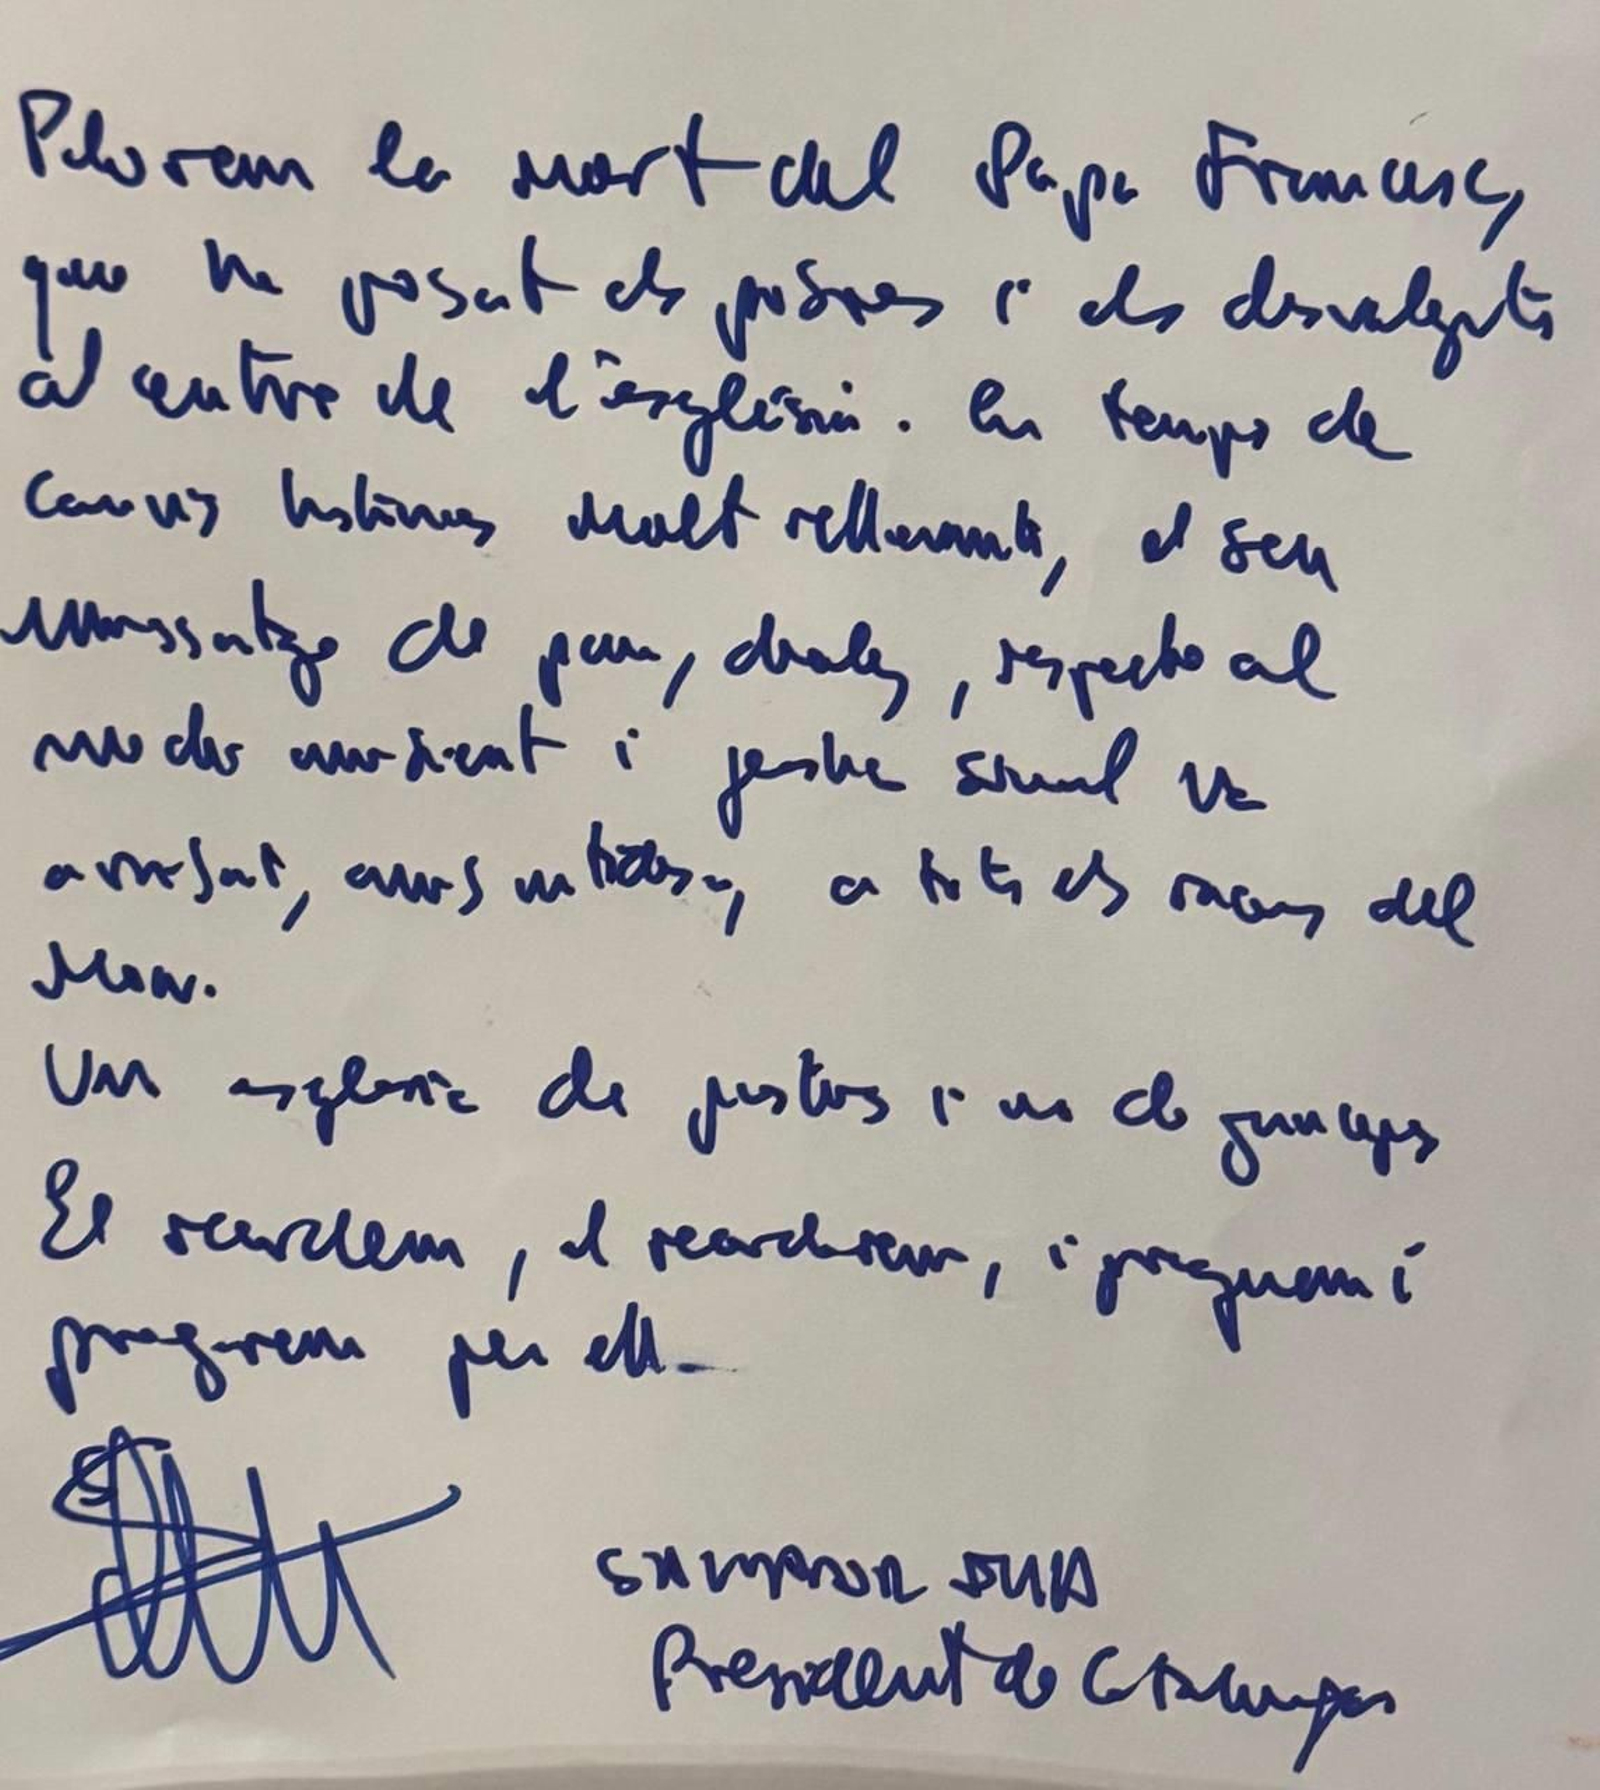 Plorem la mort del Papa Francesc,
que ha posat els pobres i els desvalguts
al centre de l'església. En temps de
canvis històrics molt rellevants, el seu
missatge de pau, diàleg, respecte al
medi ambient i justícia social va
arribat, amb a tots els racons del
Món.
Una església de justos i no de
El recordem, el recordarem, i preguem i
pregarem per ell.
SALVADOR ILLA
President de Catalunya